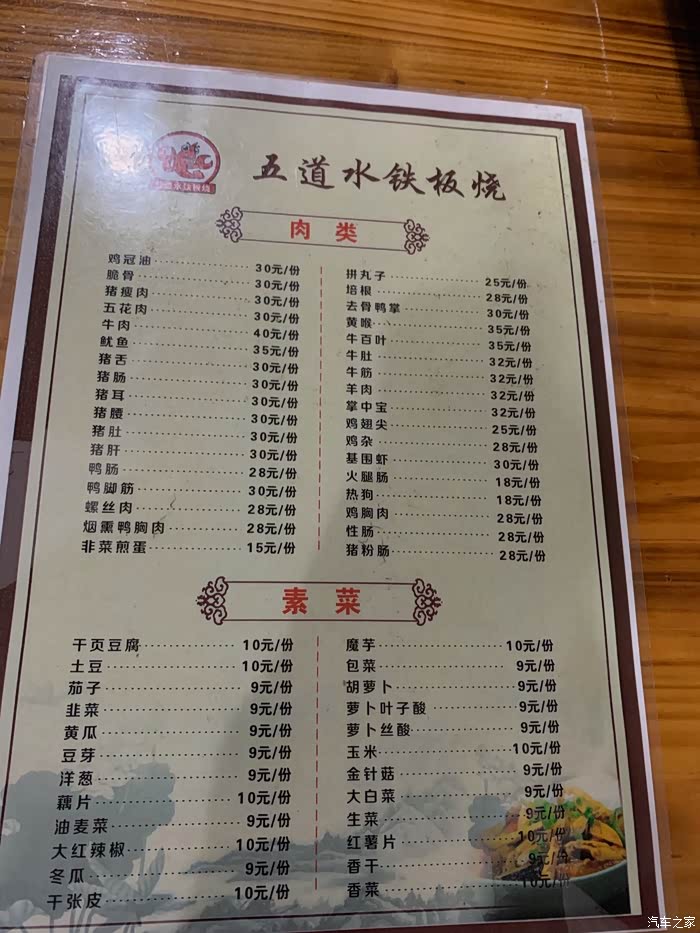 五道水铁板烧
五道水铁板烧
肉类
鸡冠油 30元/份
脆骨 30元/份
猪瘦肉 30元/份
五花肉 30元/份
牛肉 40元/份
鱿鱼 35元/份
猪舌 30元/份
猪肠 30元/份
猪耳 30元/份
猪腰 30元/份
猪肚 30元/份
猪肝 30元/份
鸭肠 28元/份
鸭脚筋 30元/份
螺丝肉 28元/份
烟熏鸭胸肉 28元/份
韭菜煎蛋 15元/份
拼丸子 25元/份
培根 28元/份
去骨鸭掌 30元/份
黄喉 35元/份
牛百叶 35元/份
牛肚 32元/份
牛筋 32元/份
羊肉 32元/份
掌中宝 32元/份
鸡翅尖 25元/份
鸡杂 28元/份
基围虾 30元/份
火腿肠 18元/份
热狗 18元/份
鸡胸肉 28元/份
性肠 28元/份
猪粉肠 28元/份
素菜
干页豆腐 10元/份
土豆 10元/份
茄子 9元/份
韭菜 9元/份
黄瓜 9元/份
豆芽 9元/份
洋葱 9元/份
藕片 10元/份
油麦菜 9元/份
大红辣椒 10元/份
冬瓜 9元/份
干张皮 10元/份
魔芋 10元/份
包菜 9元/份
胡萝卜 9元/份
萝卜叶子酸 9元/份
萝卜丝酸 9元/份
玉米 10元/份
金针菇 9元/份
大白菜 9元/份
生菜 9元/份
红薯片 10元/份
香干 9元/份
香菜 10元/份
汽车之家